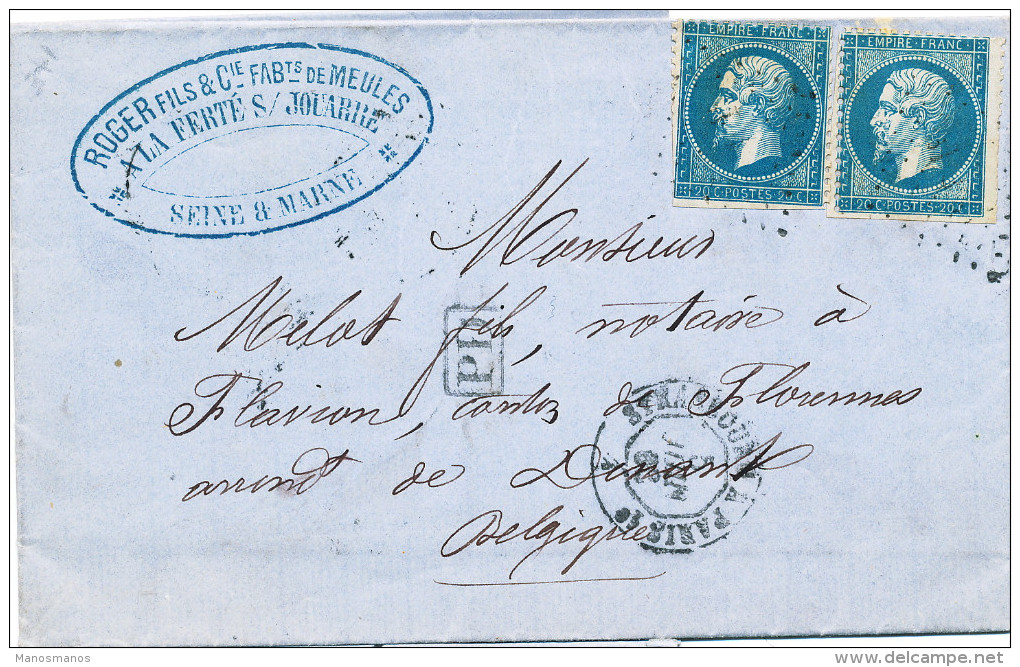 ROGER FILS & CIE FABTS DE MEULES
A LA FERTÉ S/ JOUARRE
SEINE & MARNE
EMPIRE FRANC
20 C POSTES 20 C
EMPIRE FRANC
20 C POSTES 20 C
Monsieur
Melot fils, notaire à
PD
Flavion, canton de Florennes
arrondt de Dinant
Belgique
STRASBOURG A PARIS
Manosmanos
delcampe.net